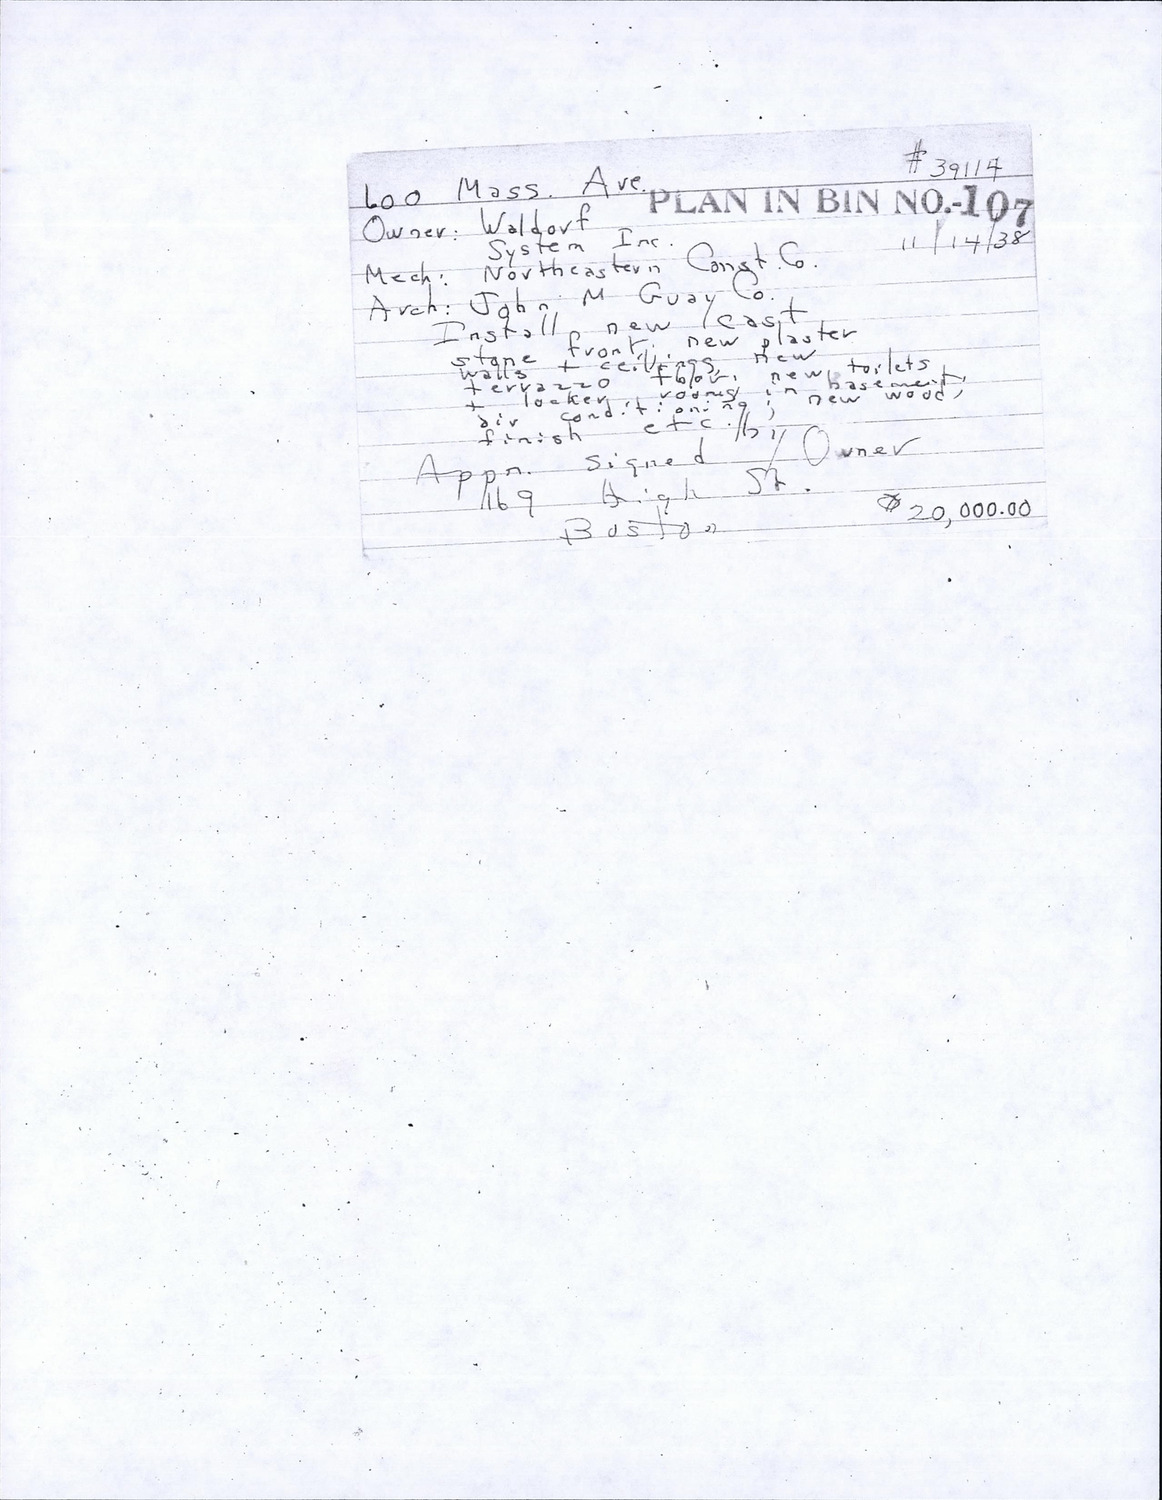 # 39117
600 Mass. Ave.
PLAN IN BIN NO.-107
Owner: Waldorf
System Inc. 11/14/38
Mech: Northeastern Const. Co.
Arch: John M Guay Co.
Install new cast
stone front, new plaster
walls + ceilings, new
terrazzo floor, new toilets
+ locker rooms in basement,
air conditioning, new wood
finish etc.
Appn. signed by Owner
169 High St.
Boston $20,000.00